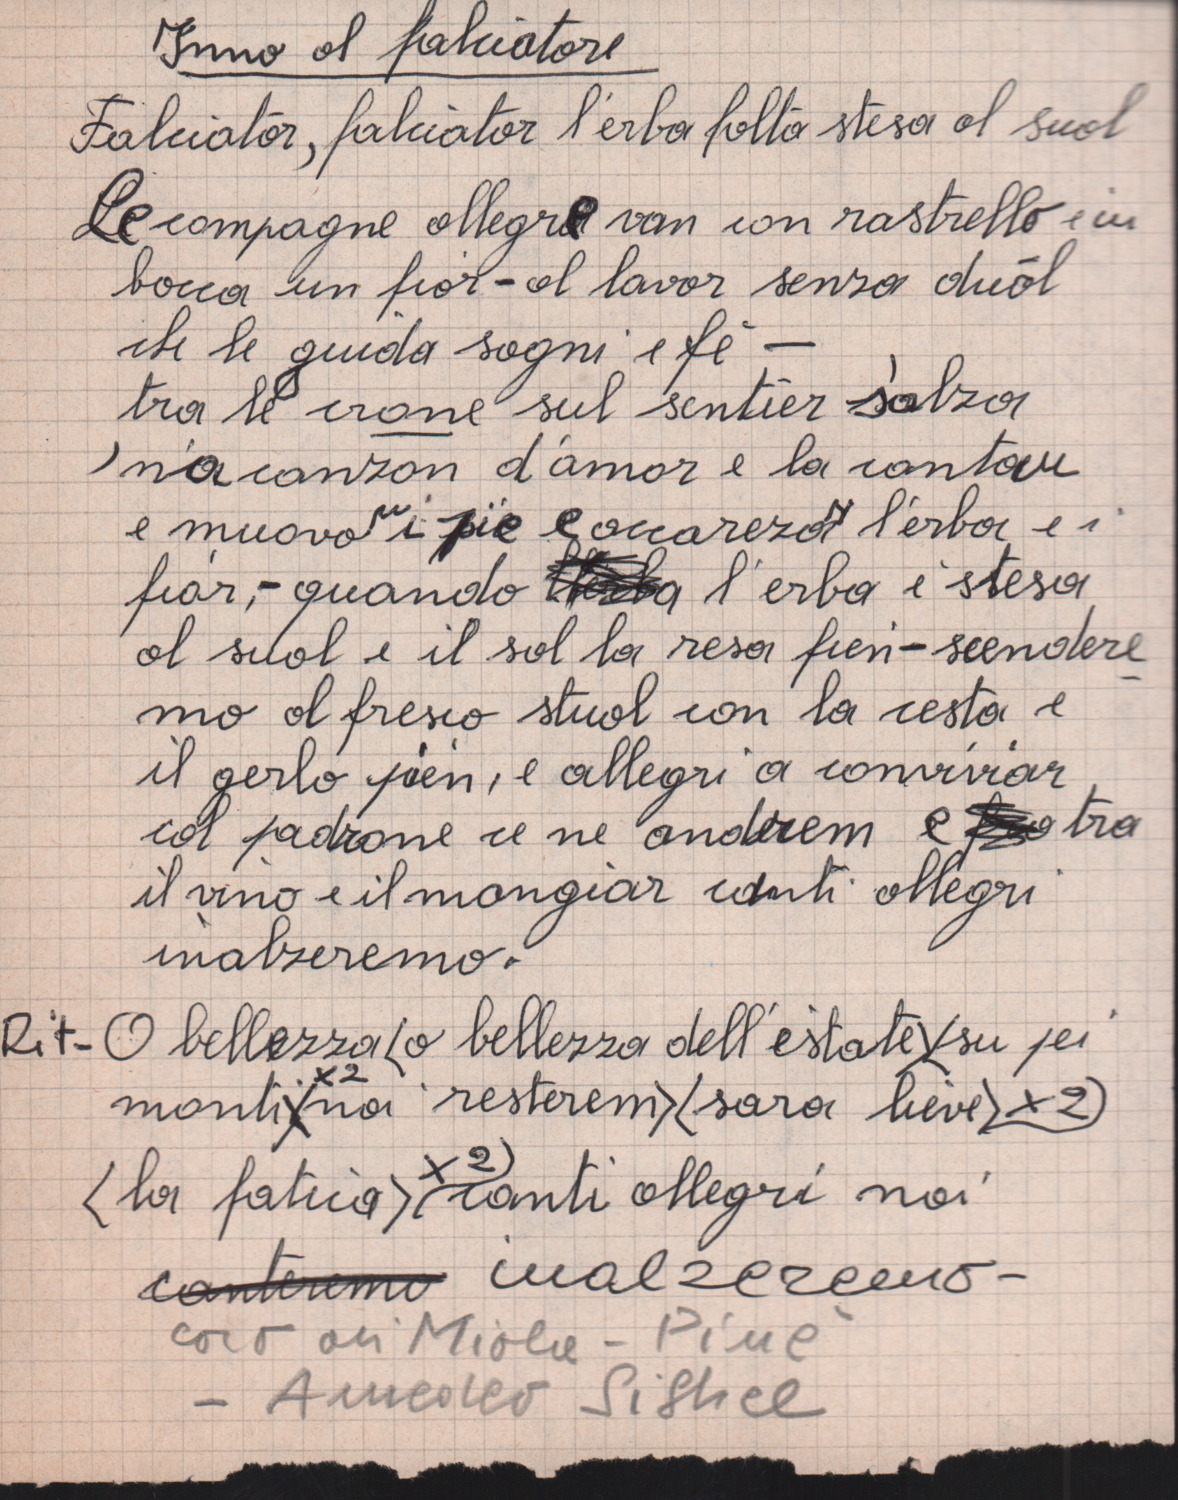 Inno al falciatore
Falciatōr, falciator l'erba folta stesa al suol
Le compagne allegre van con rastrello e in
bocca un fior - al lavor senza duōl
che le guida sogni e fè —
tra le crone sul sentier s'alza
'n'a canzon d'amor e la cantan
e muovon i piè e accarezan l'erba e i
fiór, - quando l'erba è stesa
al suol e il sol la resa fien - scendere
mo al fresco stuol con la cesta e
il gerlo pien, e allegri a conviviar
col padrone ce ne anderem e tra
il vino e il mangiar canti allegri
inalzeremo.
Rit - O bellezza (o bellezza dell'estate) (su pei
monti) x2 (noi resterem) (sara lieve) x2)
(la fatica) x2) (canti allegri noi
canteremo inalzeremo -
coro di Miola - Pinè
- Amedeo Sighel